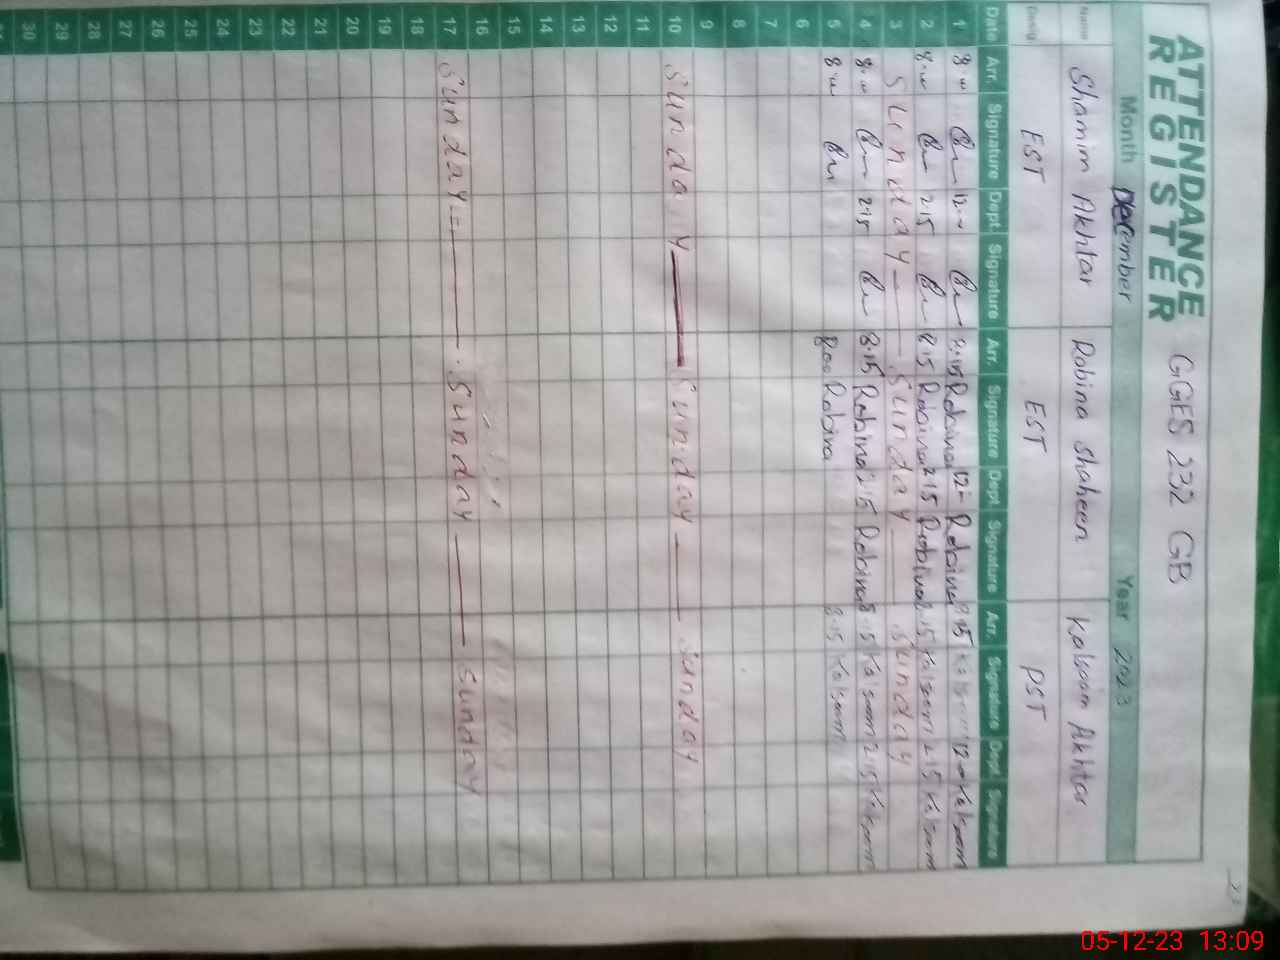 ATTENDANCE REGISTER GGES 232 GB
Month December Year 2023
Name Shamim Akhtar Robina Shaheen Kalsoom Akhtar
EST EST PST
Date Arr. Signature Dept. Signature Arr. Signature Dept. Signature Arr. Signature Dept. Signature
1 8.15 Robina 12 Robina 8.15 Kalsoom 12 Kalsoom
2 2.15 8.15 Robina 2.15 Robina 8.15 Kalsoom 2.15 Kalsoom
3 Sunday Sunday Sunday
4 2.15 8.15 Robina 2.15 Robina 8.15 Kalsoom 2.15 Kalsoom
5 Robina 8.15 Kalsoom
6
7
8
9
10 Sunday Sunday Sunday
11
12
13
14
15
16
17 Sunday Sunday Sunday
18
19
20
21
22
23
24
25
26
27
28
29
30
05-12-23 13:09